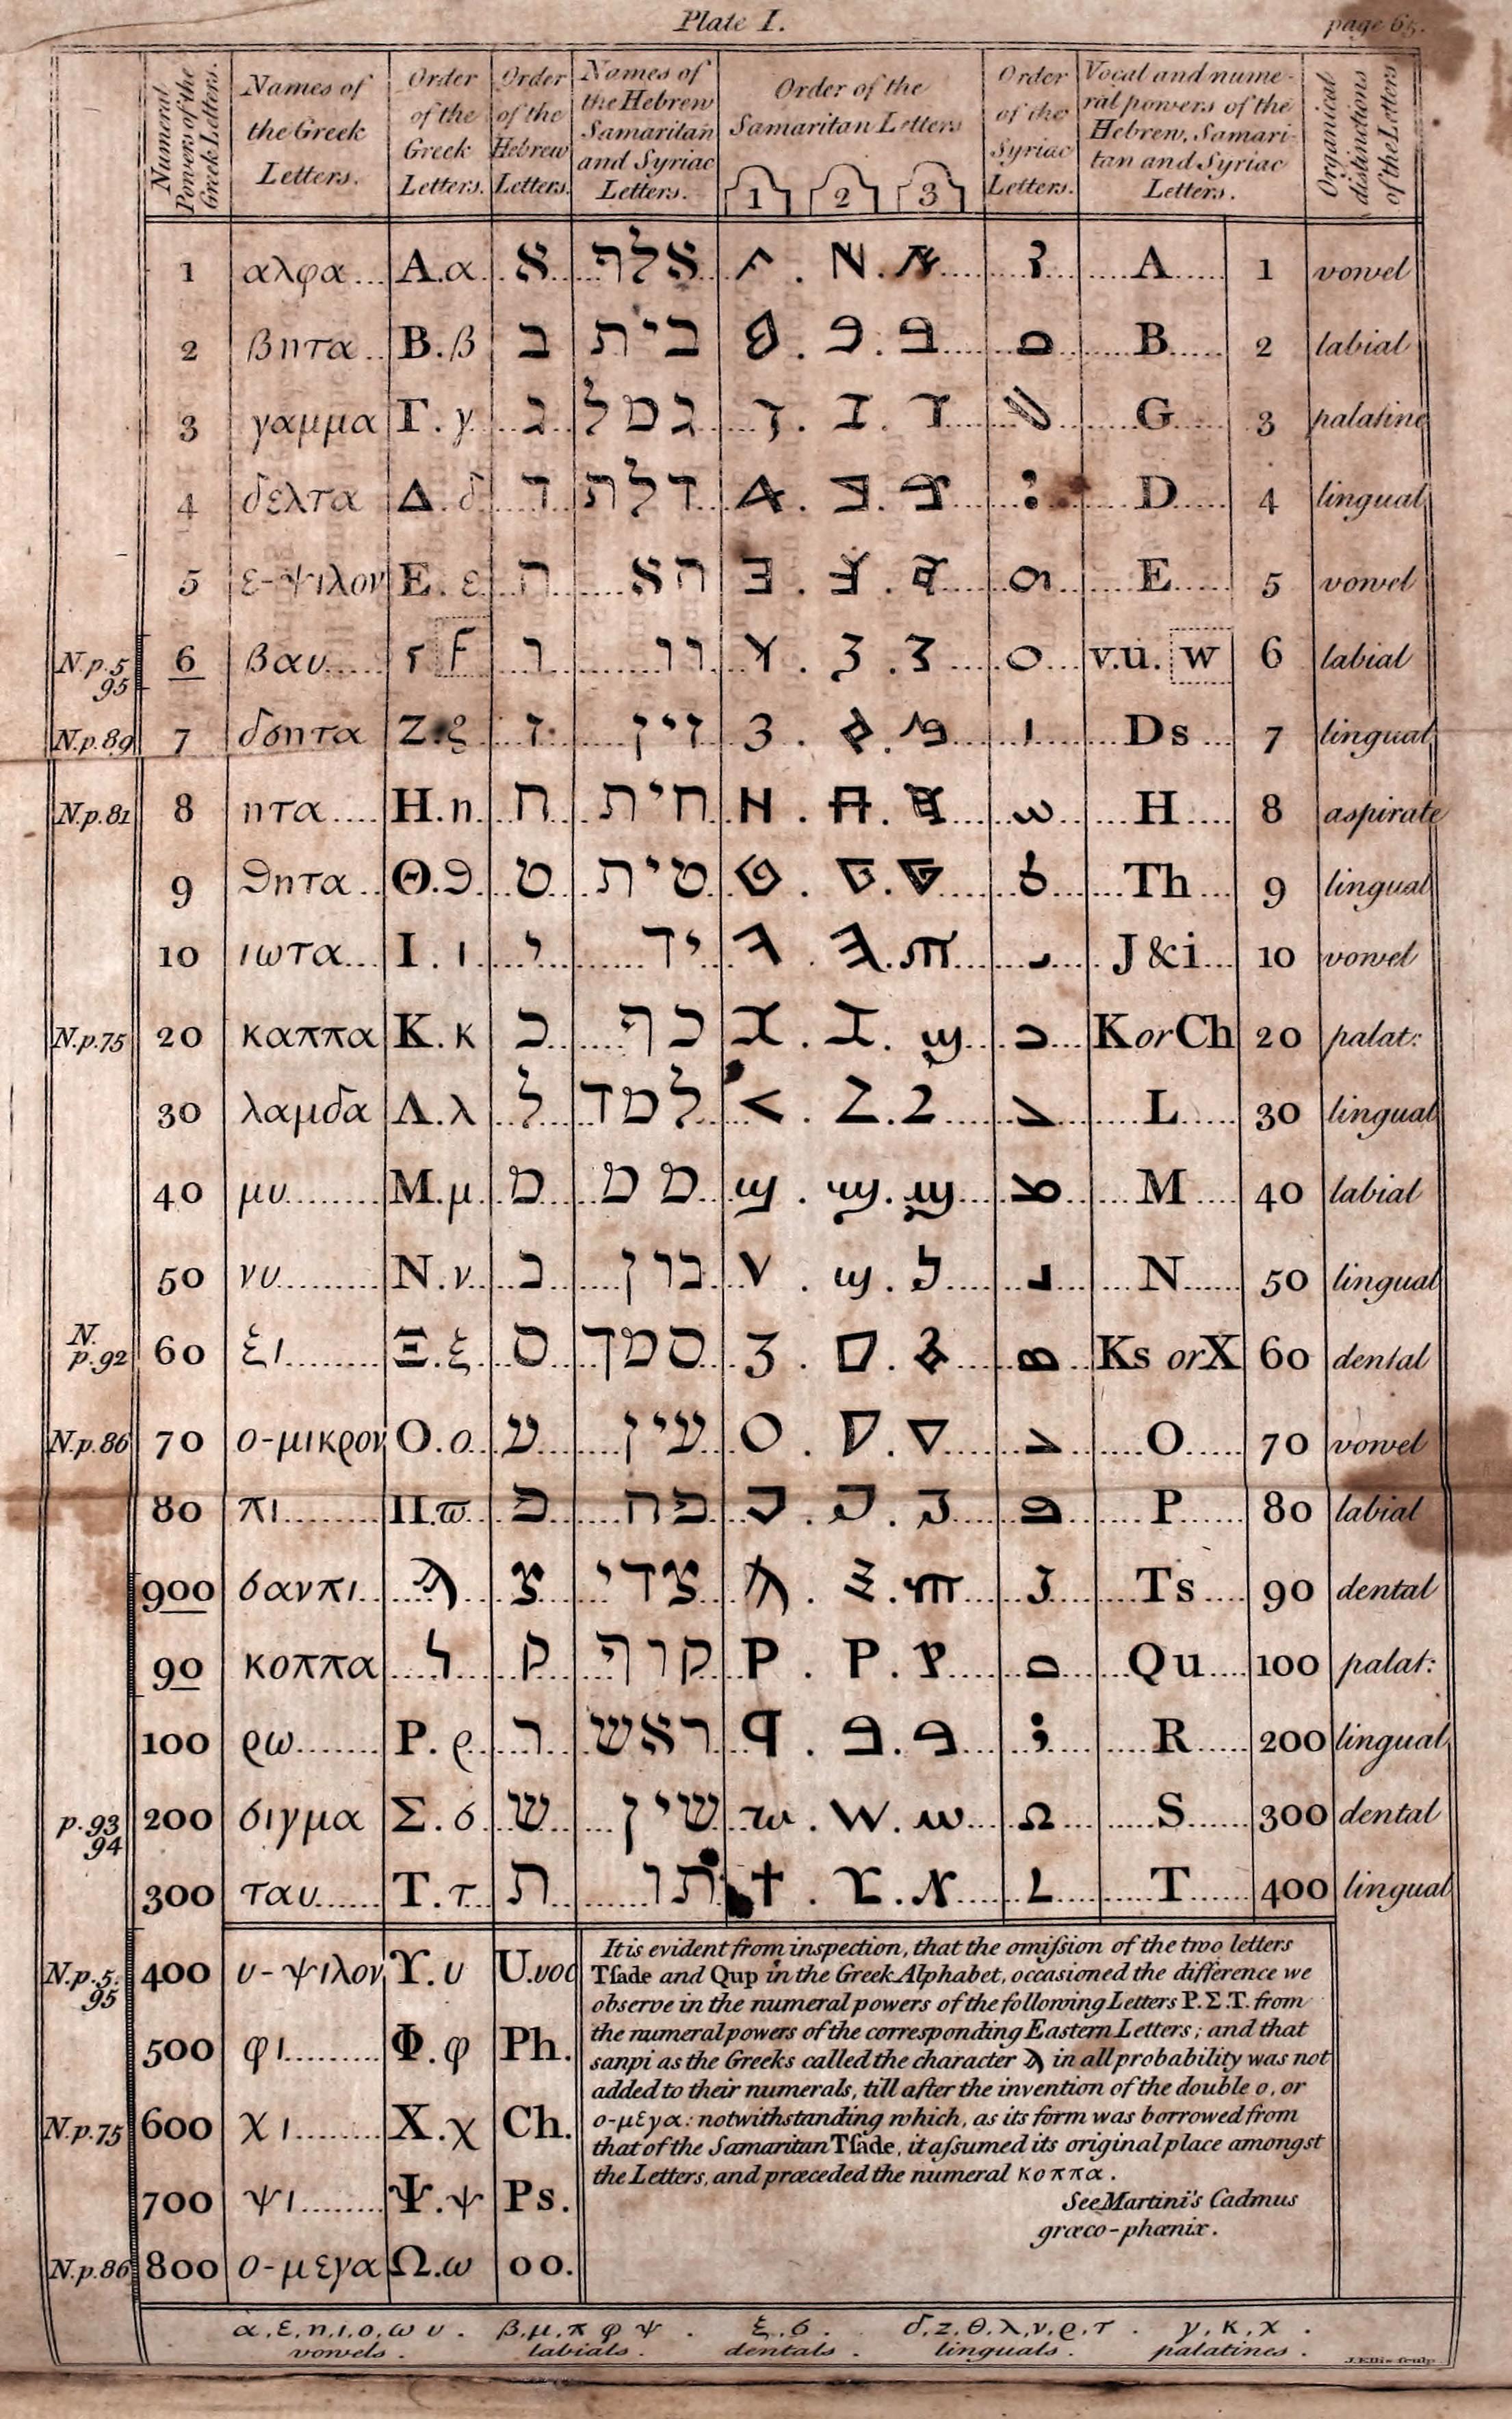 Plate I.
page 65.
Numeral Powers of the Greek Letters.
Names of the Greek Letters.
Order of the Greek Letters.
Order of the Hebrew Letters.
Names of the Hebrew Samaritan and Syriac Letters.
Order of the Samaritan Letters
1 2 3
Order of the Syriac Letters.
Vocal and numeral powers of the Hebrew, Samaritan and Syriac Letters.
Organical distinctions of the Letters
1 αλφα... Α.α. א אלף A 1 vowel
2 βητα.. Β.β ב בית B 2 labial
3 γαμμα Γ.γ. ג גמל G 3 palatine
4 δελτα Δ.δ ד דלת D 4 lingual
5 ε-ψιλον Ε.ε ה הא E 5 vowel
N.p.5 95 6 βαυ F ו וו v.u. w 6 labial
N.p.89 7 δσητα Ζ.ζ ז זין Ds 7 lingual
N.p.81 8 ητα.... Η.η. ח חית H 8 aspirate
9 ϑητα.. Θ.ϑ. ט טית Th 9 lingual
10 ιωτα... Ι.ι י יד J &i 10 vowel
N.p.75 20 καππα Κ.κ כ כף K or Ch 20 palat:
30 λαμδα Λ.λ ל למד L 30 lingual
40 μυ Μ.μ. מ מם M 40 labial
50 νυ Ν.ν. נ נון N 50 lingual
N. p.92 60 ξι Ξ.ξ ס סמך Ks or X 60 dental
N.p.86 70 ο-μικρον Ο.ο ע עין O 70 vowel
80 πι Π.ϖ. פ פה P 80 labial
900 σανπι.. ϡ צ צדי Ts 90 dental
90 κοππα ק קוף Qu 100 palat:
100 ρω Ρ.ϱ ר ראש R 200 lingual
p.93 94 200 σιγμα Σ.σ ש שין S 300 dental
300 ταυ Τ.τ ת תו T 400 lingual
N.p.5. 95 400 υ-ψιλον ϒ.υ U.voc
500 φι Φ.φ Ph.
N.p.75 600 χι Χ.χ Ch.
700 ψι Ψ.ψ Ps.
N.p.86 800 ο-μεγα Ω.ω oo.
It is evident from inspection, that the omiſsion of the two letters
Tſade and Qup in the Greek Alphabet, occasioned the difference we
observe in the numeral powers of the following Letters Ρ.Σ.Τ. from
the numeral powers of the corresponding Eastern Letters; and that
sanpi as the Greeks called the character ϡ in all probability was not
added to their numerals, till after the invention of the double o, or
ο-μεγα: notwithstanding which, as its form was borrowed from
that of the Samaritan Tſade, it aſsumed its original place amongst
the Letters, and præceded the numeral κοππα.
See Martini's Cadmus
græco-phœnix.
α,ε,η,ι,ο,ω υ. β,μ,π φ ψ . ξ,σ. δ,ζ,θ,λ,ν,ϱ,τ . γ,κ,χ .
vowels. labials. dentals. linguals. palatines.
J. Ellis sculp.